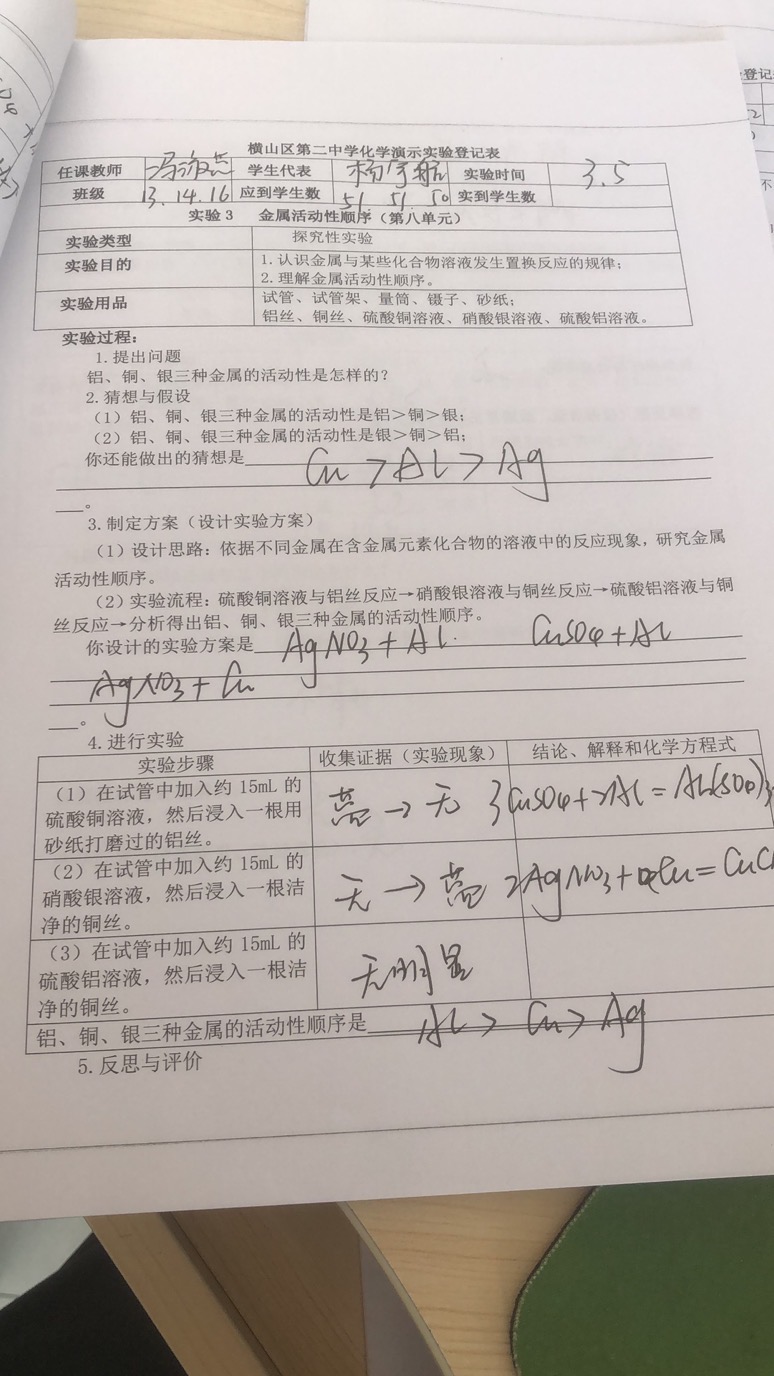 横山区第二中学化学演示实验登记表
任课教师 学生代表 实验时间 3.5
班级 13.14.16 应到学生数 51 51 50 实到学生数
实验 3 金属活动性顺序（第八单元）
实验类型 探究性实验
实验目的 1.认识金属与某些化合物溶液发生置换反应的规律；
2.理解金属活动性顺序。
实验用品 试管、试管架、量筒、镊子、砂纸；
铝丝、铜丝、硫酸铜溶液、硝酸银溶液、硫酸铝溶液。
实验过程：
1.提出问题
铝、铜、银三种金属的活动性是怎样的？
2.猜想与假设
（1）铝、铜、银三种金属的活动性是铝＞铜＞银；
（2）铝、铜、银三种金属的活动性是银＞铜＞铝；
你还能做出的猜想是 Cu > Al > Ag
。
3.制定方案（设计实验方案）
（1）设计思路：依据不同金属在含金属元素化合物的溶液中的反应现象，研究金属
活动性顺序。
（2）实验流程：硫酸铜溶液与铝丝反应→硝酸银溶液与铜丝反应→硫酸铝溶液与铜
丝反应→分析得出铝、铜、银三种金属的活动性顺序。
你设计的实验方案是 AgNO3 + Al. CuSO4 + Al
AgNO3 + Cu
。
4.进行实验
实验步骤 收集证据（实验现象） 结论、解释和化学方程式
（1）在试管中加入约 15mL 的
硫酸铜溶液，然后浸入一根用
砂纸打磨过的铝丝。
蓝 → 无 3CuSO4 + 2Al = Al2(SO4)3
（2）在试管中加入约 15mL 的
硝酸银溶液，然后浸入一根洁
净的铜丝。
无 → 蓝 2AgNO3 + Cu =
（3）在试管中加入约 15mL 的
硫酸铝溶液，然后浸入一根洁
净的铜丝。
无明显
铝、铜、银三种金属的活动性顺序是 Al > Cu > Ag
5.反思与评价